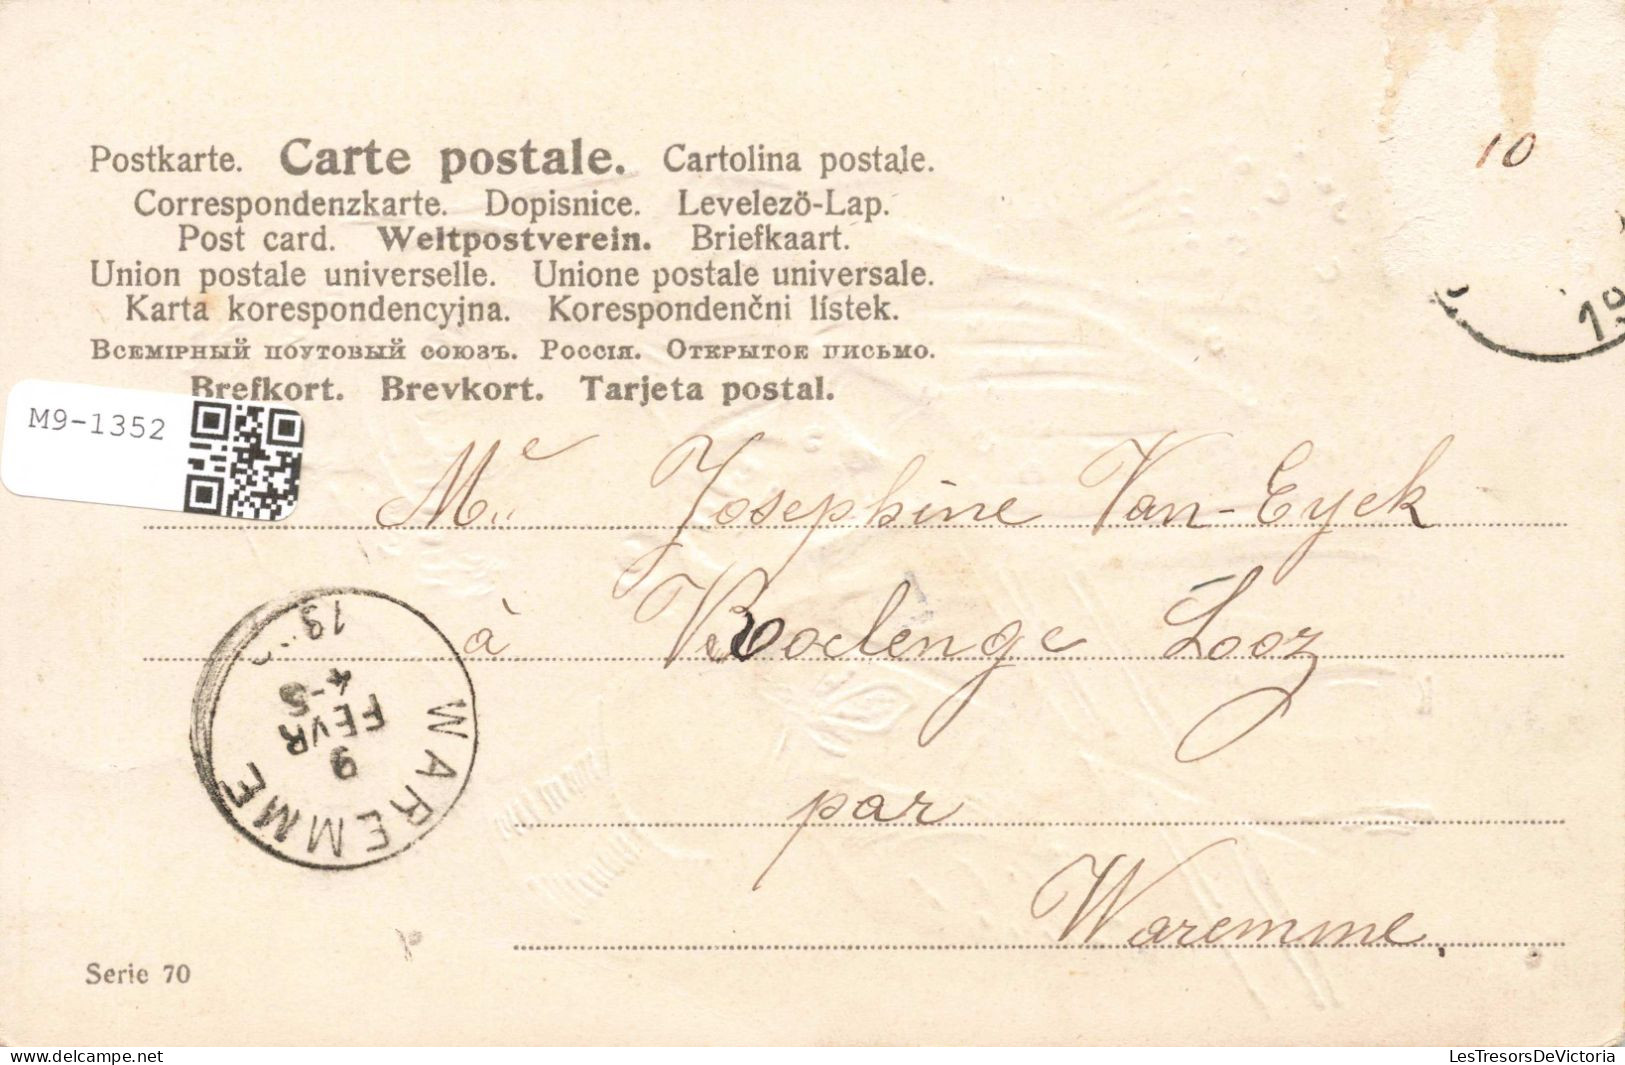 10
Postkarte. Carte postale. Cartolina postale.
Correspondenzkarte. Dopisnice. Levelező-Lap.
Post card. Weltpostverein. Briefkaart.
Union postale universelle. Unione postale universale.
Karta korespondencyjna. Korespondenčni lístek.
Всемірный поутовый союзъ. Россія. Открытое письмо.
Brefkort. Brevkort. Tarjeta postal.
M9-1352
Mlle Josephine Van-Eyck
à Looz
par
Waremme.
WAREMME
9
FEVR
4-5
19
Serie 70
delcampe.net
LesTresorsDeVictoria